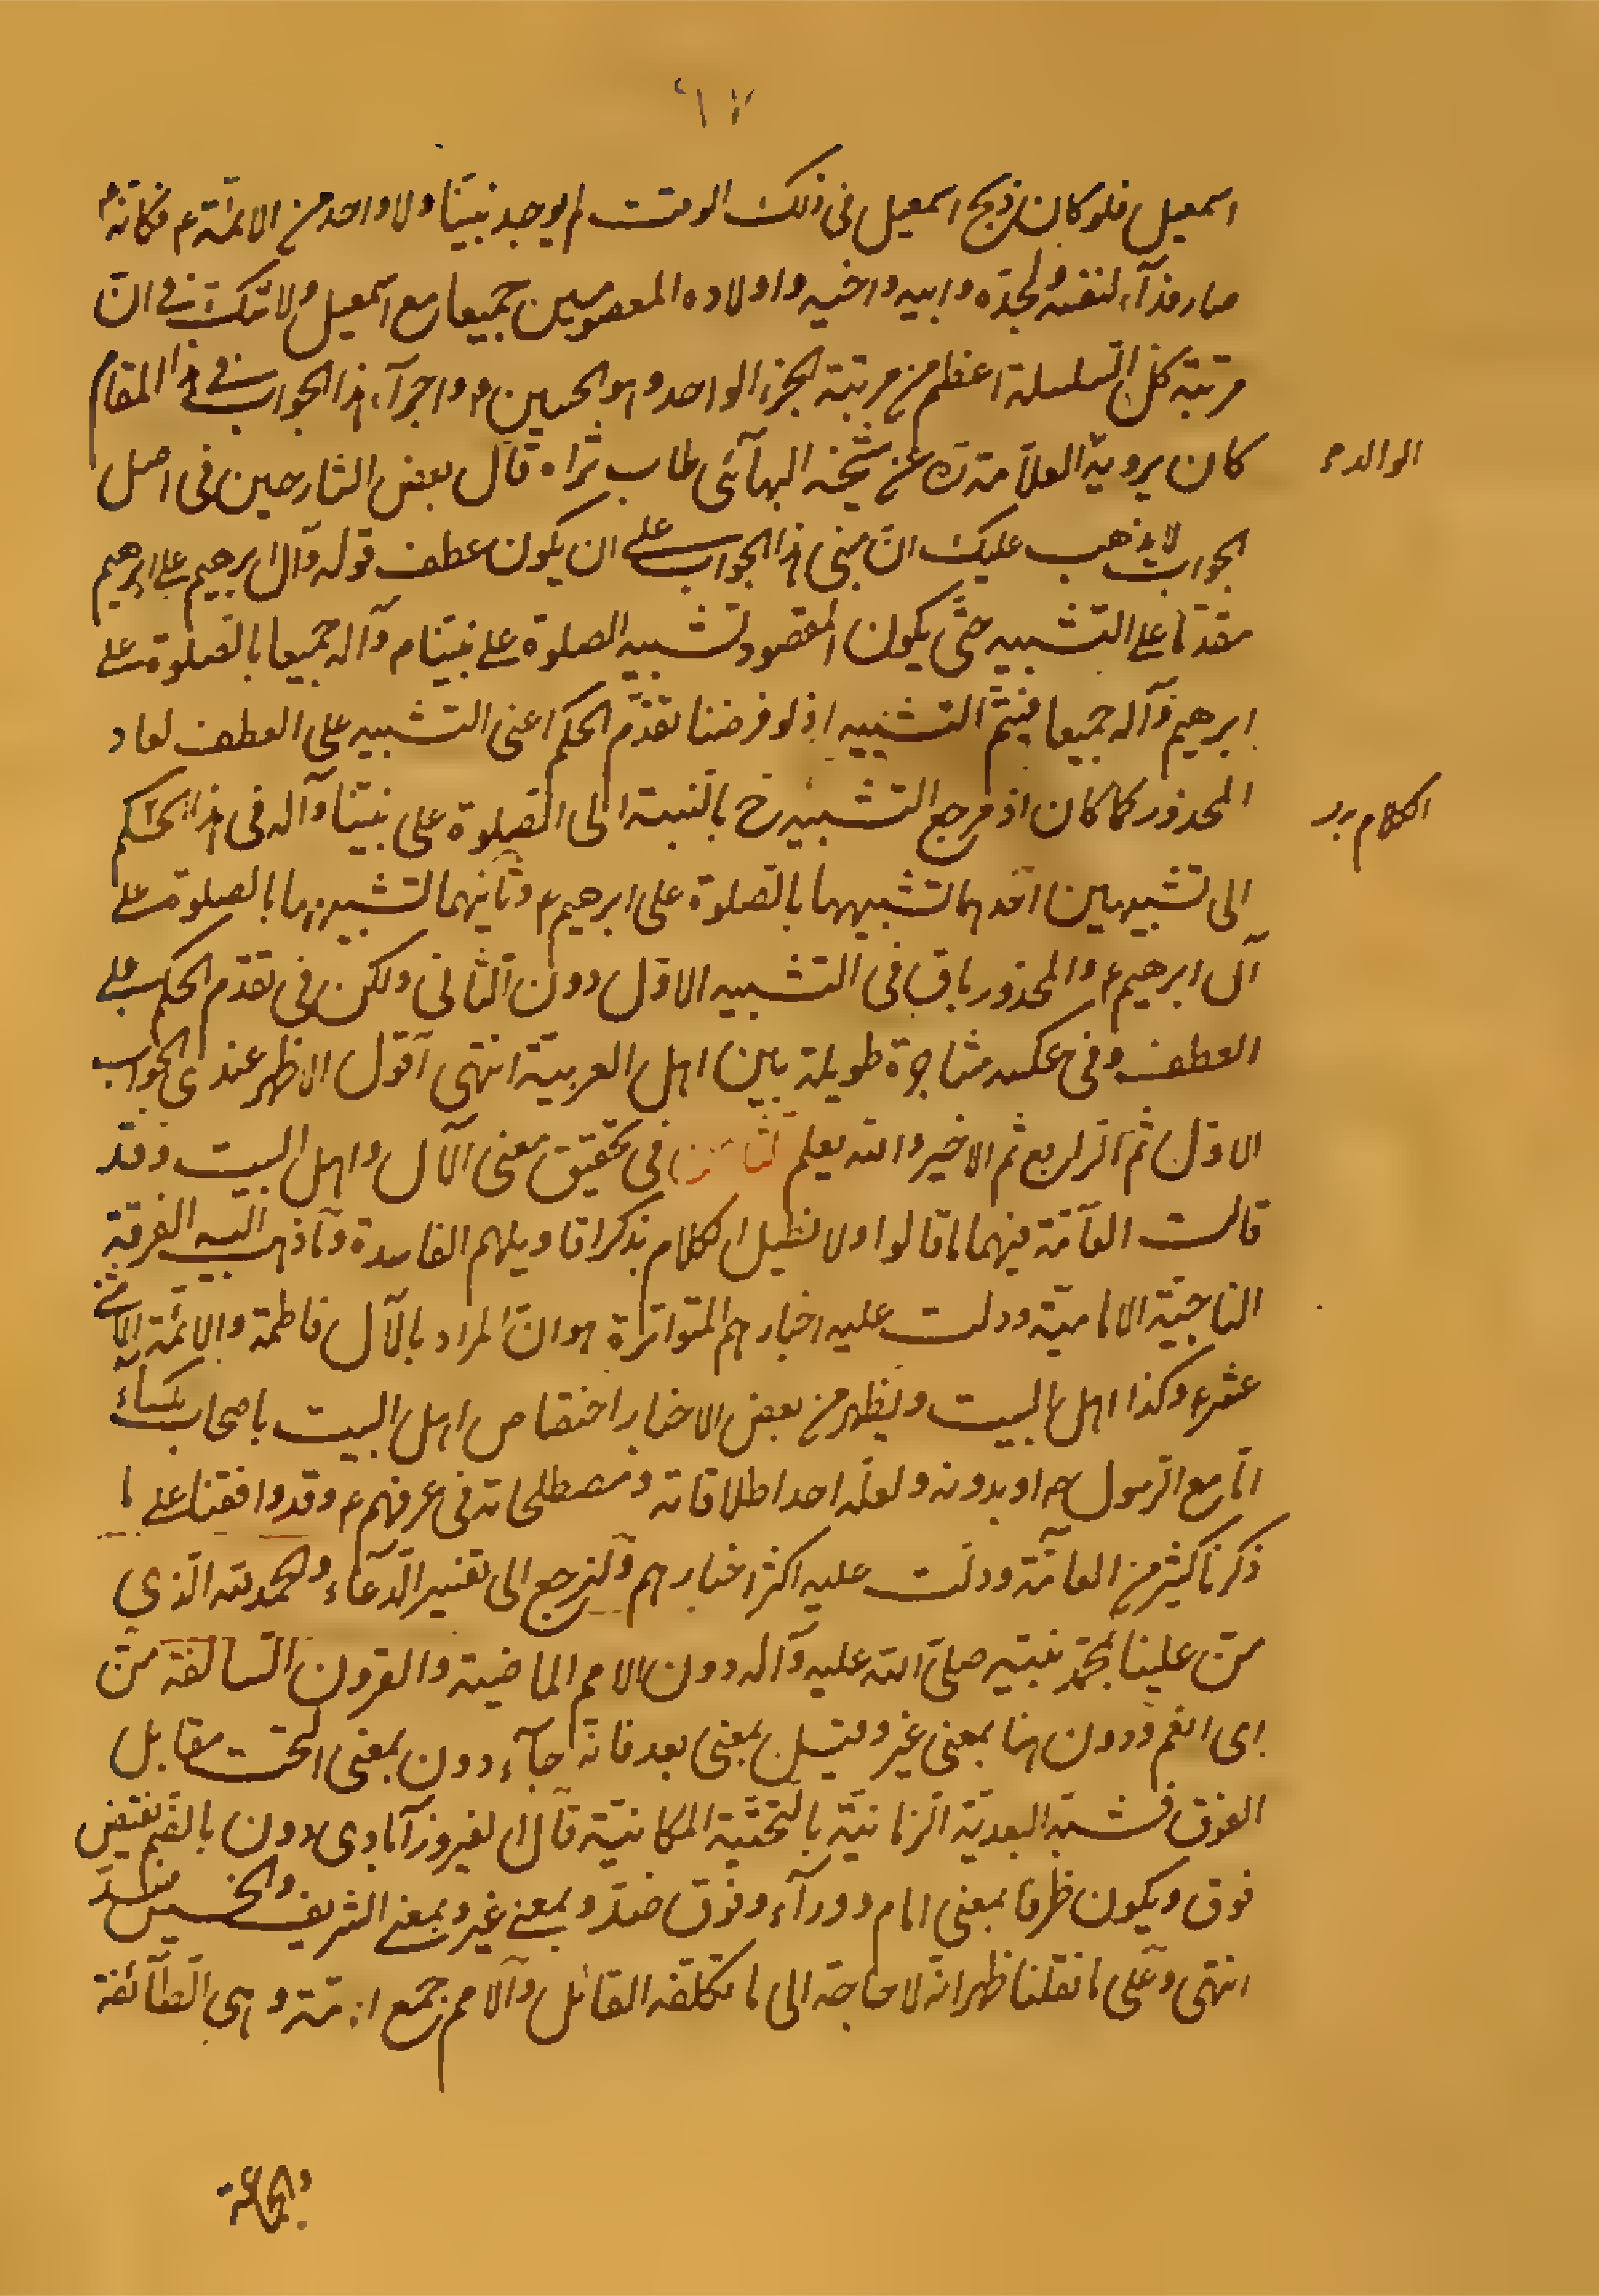 اسمعيل فلو كان ذبح اسمعيل في ذلك الوقت لم يوجد نبيّنا ولا واحد من الائمّة ع فكانّه
صار فدآء لنفسه ولجدّه وابيه واخيه واولاده المعصومين جميعا مع اسمعيل ولا شك في انّ
مرتبة كل السلسلة اعظم من مرتبة الجزء الواحد وهو الحسين ع واجرآء هذا الجواب في هذا المقام
كان يرويه العلّامة ره عن شيخنه البهآئي طاب ثراه قال بعض الشارحين في اصل
الوالد
الجواب لا يذهب عليك انّ مبنى هذا الجواب على ان يكون عطف قوله وآل ابرهيم على ابرهيم
مقدّما على التشبيه حتّى يكون المقصود تشبيه الصلوة على نبيّنا م وآله جميعا بالصلوة على
ابرهيم وآله جميعا فيتمّ التشبيه اذ لو فرضنا تقدّم الحكم اعنى التشبيه على العطف لعاد
المحذور كما كان اذ مرجع التشبيه ح بالنسبة الى الصلوة على نبيّنا وآله في هذا الحكم
الكلام
الى تشبيهين احدهما تشبيهها بالصلوة على ابرهيم ع وثانيهما تشبيهها بالصلوة على
آل ابرهيم ع والمحذور باق في التشبيه الاوّل دون الثاني ولكن في تقدّم الحكم على
العطف وفي عكسه مشاجرة طويلة بين اهل العربيّة انتهى اقول الاظهر عندي الجواب
الاوّل ثم الرابع ثم الاخير والله يعلم الثامن في تحقيق معنى الآل واهل البيت وقد
قالت العآمّة فيهما ما قالوا ولا نطيل الكلام بذكر اقاويلهم الفاسدة وما ذهب اليه الفرقة
الناجيّة الاماميّة ودلت عليه اخبارهم المتواترة هو انّ المراد بالآل فاطمة والائمّة الاثنى
عشر ع وكذا اهل البيت ويظهر من بعض الاخبار اختصاص اهل البيت باصحاب الكسآء
امّا مع الرسول ص او بدونه ولعله احد اطلاقاته ومصطلحاته في عرفهم ع وقد وافقنا على ما
ذكرنا كثير من العآمّة ودلت عليه اكثر اخبارهم ولنرجع الى تفسير الدعآء والحمد لله الذي
منّ علينا بمحمّد نبيّه صلى الله عليه وآله دون الامم الماضية والقرون السالفة منّ
اى انعم ودون هنا بمعنى غير وقيل بمعنى بعد فانّه جآء دون بمعنى تحت مقابل
الفوق فشبّه البعديّة الزمانيّة بالتحتيّة المكانيّة قال الفيروزآبادي دون بالضم نقيض
فوق ويكون ظرفا بمعنى امام وورآء وفوق ضدّ وبمعنى غير وبمعنى الشريف والخسيس ضدّ
انتهى وعلى ما نقلنا ظهر انّه لا حاجة الى ما تكلّفه القائل والامم جمع امّة وهي الطآئفة
والجماعة